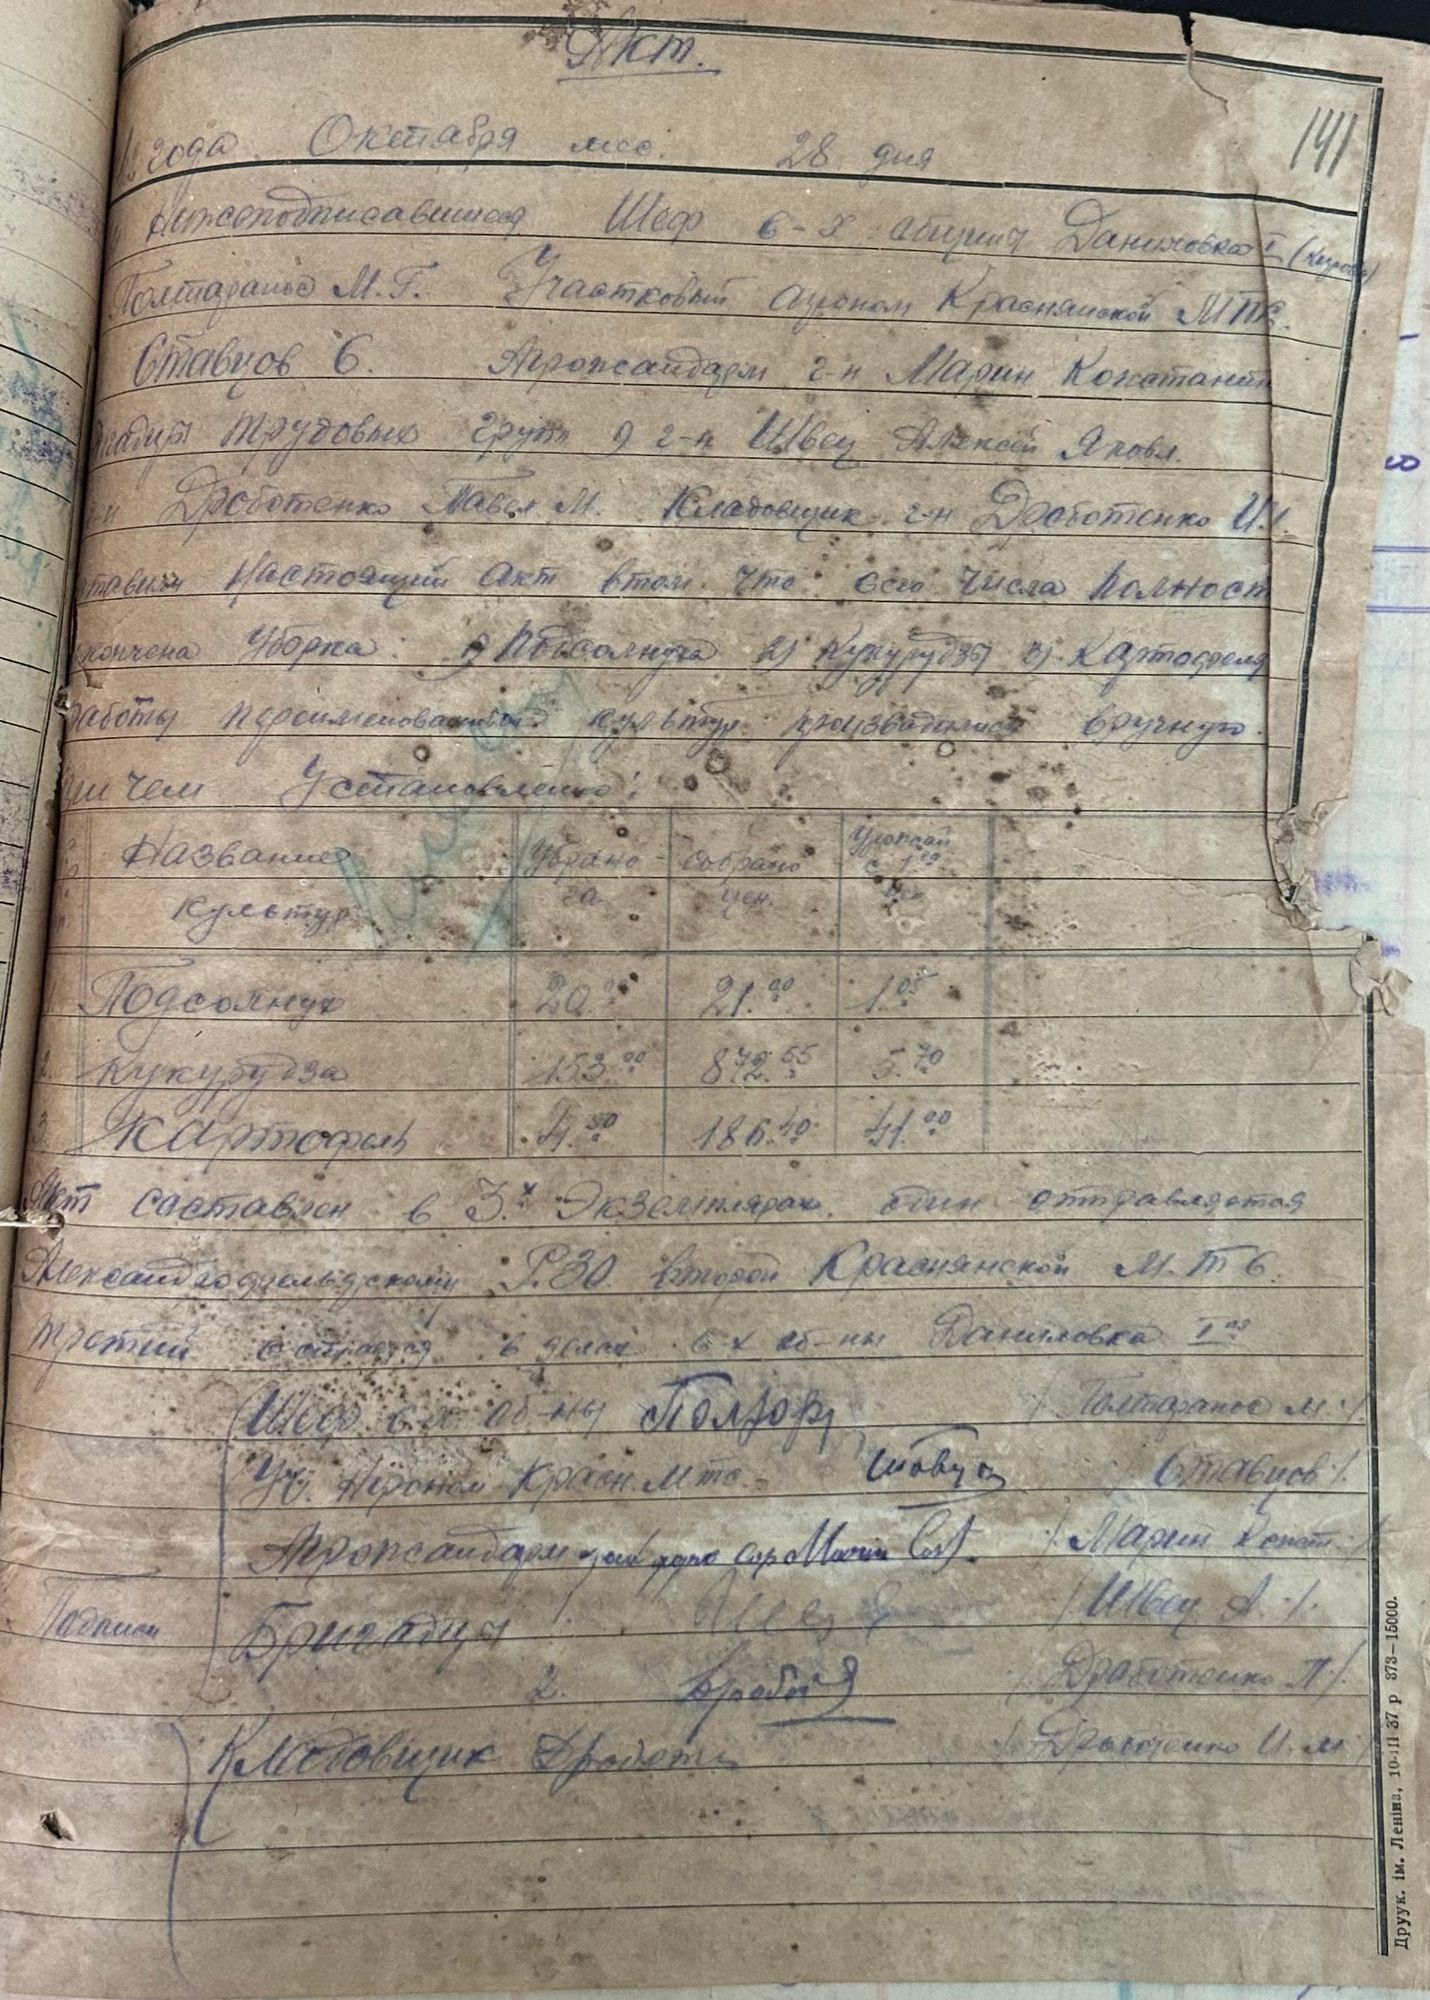 Акт.
141
года Октября мес. 28 дня
Нижеподписавшиеся Шеф с-х общины Даниловка I
Полтаранос М.Г. Участковый агроном Краснянской МТС.
Ставцов С. Агрожандарм г-н Марин Констант
трудовых групп 1) г-н Швец Алексей Яковл.
Дроботенко Павел М. Кладовщик г-н Дроботенко И.
Настоящий акт в том что сего числа полност
Уборка: 1) Подсолнуха 2) Кукурудзы 3) Картофеля
работы культур производились вручную.
При чем Установлено:
Название культур Убрано га собрано цен. Урожай с 1 га
1. Подсолнух 20.00 21.00 1.05
2. Кукурудза 153.00 872.55 5.70
3. Картофель 4.50 186.40 41.00
Акт составлен в 3-х Экземплярах. один отправляется
Р.ЗО. второй Краснянской М.Т.С.
третий остается в делах с-х об-ны Даниловка I
Шеф с-х об-ны Полтар / Полтаранос М./
Уч. Агроном Красн. Мтс. Ставцов / Ставцов /
Агрожандарм / Марин Конст. /
Подписи Бригадиры / Швец А. /
2. / Дроботенко П /
Кладовщик / Дроботенко И. М /
Друук. ім. Леніна, 10-III 37 р 373–15000.